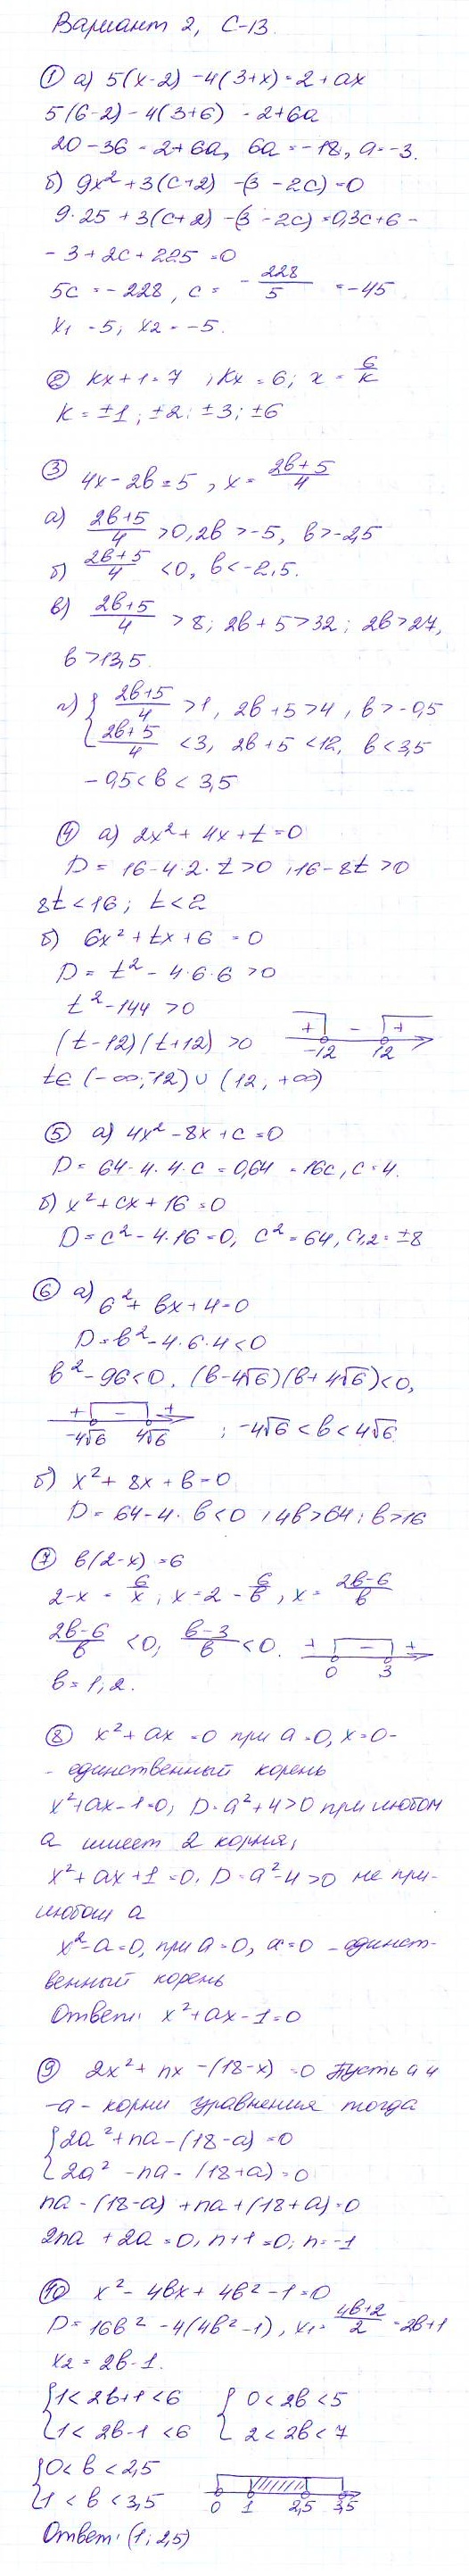 Вариант 2, С-13.
① а) 5(x-2) -4(3+x) = 2 + ax
5(6-2) - 4(3+6) = 2+6a
20-36 = 2+6a, 6a = -18, a = -3.
б) 9x² + 3(c+2) -(3 - 2c) = 0
9·25 + 3(c+2) -(3 - 2c) = 0, 3c+6 -
- 3 + 2c + 225 = 0
5c = -228, c = - 228/5 = -45
x₁ = 5; x₂ = -5.
② kx+1 = 7 ; kx = 6; x = 6/k
k = ±1; ±2; ±3; ±6
③ 4x - 2b = 5, x = (2b+5)/4
а) (2b+5)/4 > 0, 2b > -5, b > -2,5
б) (2b+5)/4 < 0, b < -2,5.
в) (2b+5)/4 > 8; 2b + 5 > 32; 2b > 27,
b > 13,5.
г) { (2b+5)/4 > 1, 2b + 5 > 4, b > -0,5
{ (2b+5)/4 < 3, 2b + 5 < 12, b < 3,5
- 0,5 < b < 3,5
④ а) 2x² + 4x + t = 0
D = 16 - 4·2·t > 0, 16 - 8t > 0
8t < 16; t < 2
б) 6x² + tx + 6 = 0
D = t² - 4·6·6 > 0
t² - 144 > 0
(t-12)(t+12) > 0 + - + -12 12
t∈ (-∞; -12) ∪ (12, +∞)
⑤ а) 4x² - 8x + c = 0
D = 64 - 4·4·c = 0, 64 = 16c, c = 4.
б) x² + cx + 16 = 0
D = c² - 4·16 = 0, c² = 64, c₁,₂ = ±8
⑥ а) 6² + bx + 4 = 0
D = b² - 4·6·4 < 0
b² - 96 < 0, (b - 4√6)(b + 4√6) < 0,
+ - + -4√6 4√6 ; -4√6 < b < 4√6
б) x² + 8x + b = 0
D = 64 - 4·b < 0, 4b > 64; b > 16
⑦ b(2-x) = 6
2-x = 6/x; x = 2 - 6/b, x = (2b-6)/b
(2b-6)/b < 0; (b-3)/b < 0. + - + 0 3
b = 1; 2.
⑧ x² + ax = 0 при a = 0, x = 0 -
- единственный корень
x² + ax - 1 = 0; D = a² + 4 > 0 при любом
a имеет 2 корня;
x² + ax + 1 = 0, D = a² - 4 > 0 не при-
любом a
x² - a = 0, при a = 0, x = 0 - единст-
венный корень
Ответ: x² + ax - 1 = 0
⑨ 2x² + nx - (18-x) = 0 Пусть a и
-a - корни уравнения тогда
{ 2a² + na - (18-a) = 0
{ 2a² - na - (18+a) = 0
na - (18-a) + na + (18+a) = 0
2na + 2a = 0, n+1 = 0; n = -1
⑩ x² - 4bx + 4b² - 1 = 0
D = 16b² - 4(4b² - 1), x₁ = (4b+2)/2 = 2b+1
x₂ = 2b - 1.
{ 1 < 2b+1 < 6 { 0 < 2b < 5
{ 1 < 2b-1 < 6 { 2 < 2b < 7
{ 0 < b < 2,5
{ 1 < b < 3,5 0 1 2,5 3,5
Ответ: (1; 2,5)